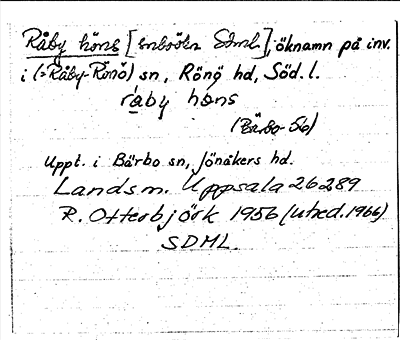 Råby höns [inbööln Söml.], öknamn på inv.
i (=Råby-Rönö) sn, Rönö hd, Söd. l.
råby höns
(Bärbo-56)
Uppt. i Bärbo sn, Jönåkers hd.
Landsm. Uppsala 26289
R. Otterbjörk 1956 (utred. 1966)
SDML.